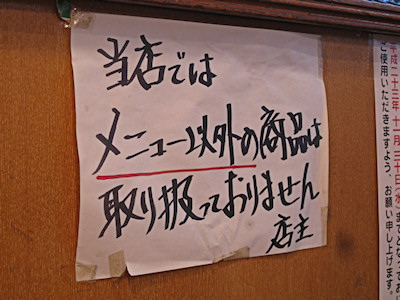 当店では
メニュー以外の商品は
取り扱っておりません
店主
平成二十三年十一月三十日(水)までとなってお
ご使用いただきますよう、お願い申し上げます。